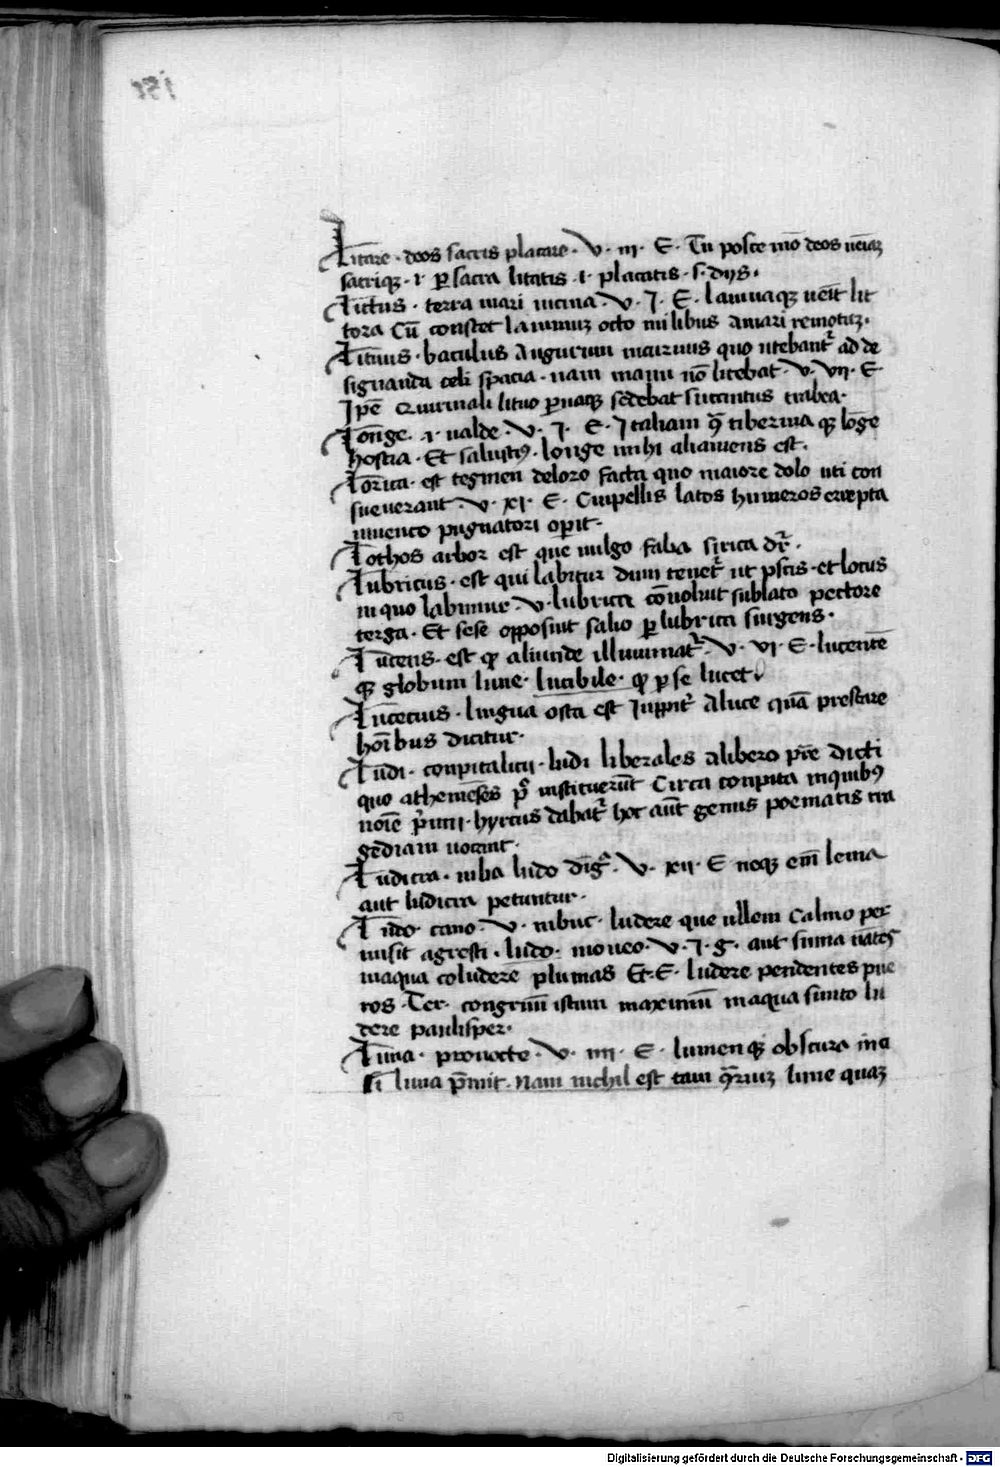 Litare · deos sacris placare · V · iii · E · Tu posce mō deos ueīaꝫ
sacriqꝫ · i · ꝑ sacra litatis · i · placatis · s · dijs ·
Lictus · terra mari uicina · V · I · E · lauinaqꝫ ueīt lit
tora Cū constet lauiniuꝫ octo milibus Amari remotuꝫ ·
Lituus · baculus Augurum incuruus quo utebant᷑ ad de
signanda celi spacia · nam manu nō licebat · V · VII · E
Ipē Quirinali lituo ꝑuaqꝫ sedebat succintus trabea ·
Longe · i · ualde · V · I · E · Italiam ꝯ̄ tiberina qꝫ lōge
hostia · Et salustiꝰ · longe mihi aliamens est ·
Lorica · est tegmen deloro facta quo maiore dolo uti con
sueuerant · V · XI · E · Cuipellis latos humeros erepta
iuuenco pugnatori oꝑit ·
Lothos arbor est que uulgo faba sirica dr̄ ·
Lubricus · est qui labitur dum tenet᷑ ut pscis · et locus
in quo labimur · V · lubrica cōuoluit sublato pectore
terga · Et sese opposuit salio ꝑ lubrica surgens ·
Lucens · est qꝫ aliunde illuminat᷑ · V · VI · E · lucentē
qꝫ globum lune · lucibile · qꝫ ꝑ se lucet
Lucecius · lingua osca est Iuppit᷑ Aluce quā prestare
hoībus dicitur ·
Ludi · conpitalicii · ludi liberales Alibero pr̄e dicti
quo athenieses pᵒ instituerūt Circa conpita inquibꝰ
noīe p̄mii · hyrcus dabat᷑ hoc aūt genus poematis tra
gediam uocant ·
Ludicra · uiba ludo dīgᵃ · V · XII · E neqꝫ eīm leuia
aut ludicra petuntur ·
Ludo · cano · V · nibuc · ludere que uellem Calmo per
misit agresti · ludo · moueo · V · I · G · aut suma uates
inaqua coludere plumas Et · E · ludere pendentes pue
ros · Ter · congrum istum maximū inaqua sinito lu
dere paulisper ·
Luna · pronocte · V · IIII · E · lumenqꝫ obscura uica
sī luna p̄mit · Nam nichil est tam ꝯ̄riuꝫ lune quaꝫ
Digitalisierung gefördert durch die Deutsche Forschungsgemeinschaft - DFG